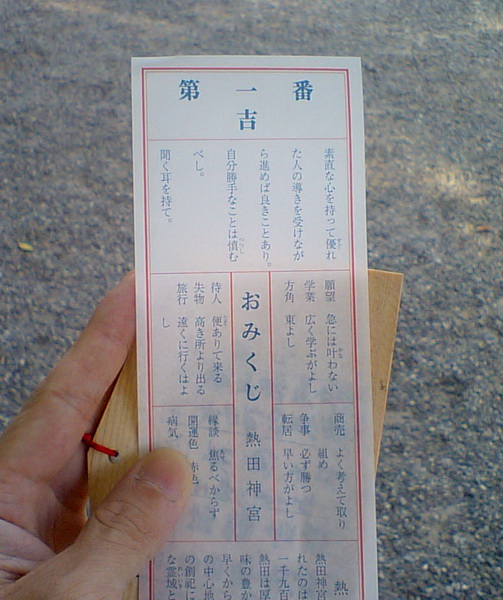 第一番
吉
素直な心を持って優れ
た人の導きを受けなが
ら進めば良きことあり。
自分勝手なことは慎む
べし。
聞く耳を持て。
願望 急には叶わない
学業 広く学ぶがよし
方角 東よし
商売 よく考えて取り
組め
争事 必ず勝つ
転居 早い方がよし
おみくじ 熱田神宮
待人 便ありて来る
失物 高き所より出る
旅行 遠くに行くはよ
し
縁談 焦るべからず
開運色 赤色
病気
熱
熱田神宮
れたのは
一千九百
熱田は厚
味の豊か
早くから
の中心地
の創祀に
な霊域と